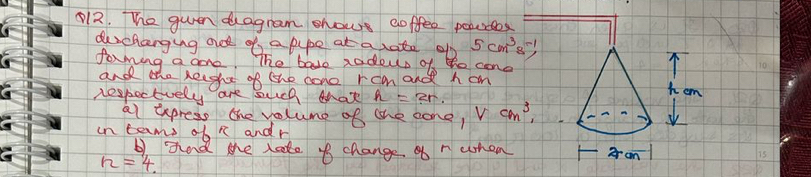 Q12. The given diagram shows coffee powder
discharging out of a pipe at a rate of 5 cm³s⁻¹,
forming a cone. The base radius of the cone
and the height of the cone r cm and h cm
respectively are such that h = 2r.
a) Express the volume of the cone, V cm³,
in terms of R and r
b) Find the rate of change of r when
r = 4.
h cm
2r cm